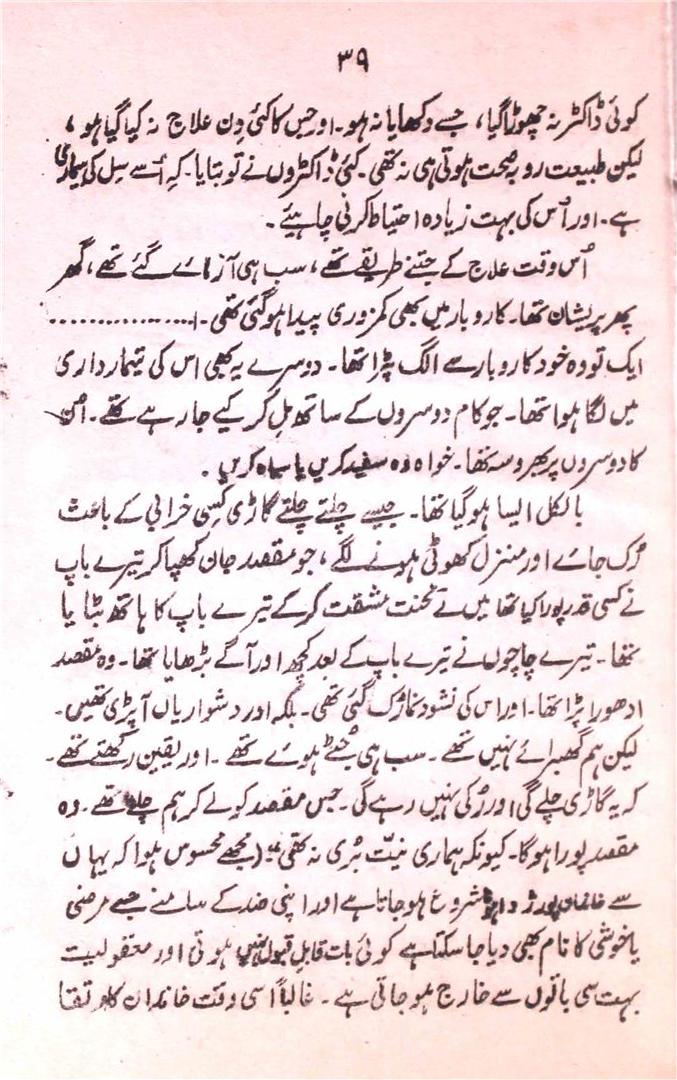 ۳۹
کوئی ڈاکٹر نہ چھوڑا گیا، جسے دکھایا نہ ہو۔ اور جس کا کئی دن علاج نہ کیا گیا ہو،
لیکن طبیعت رو بہ صحت ہوتی ہی نہ تھی۔ کئی ڈاکٹروں نے تو بتایا۔ کہ اُسے سِل کی بیماری
ہے۔ اور اُس کی بہت زیادہ احتیاط کرنی چاہیئے۔
اُس وقت علاج کے جتنے طریقے تھے، سب ہی آزمائے گئے تھے، گھر
بھر پریشان تھا۔ کاروبار میں بھی کمزوری پیدا ہو گئی تھی۔ ................
ایک تو وہ خود کاروبار سے الگ پڑا تھا۔ دوسرے یہ بھی اس کی تیمارداری
میں لگا ہوا تھا۔ جو کام دوسروں کے ساتھ مل کر کیے جا رہے تھے۔ اُن
کا دوسروں پر بھروسہ تھا۔ خواہ وہ سفید کریں یا سیاہ کریں۔
بالکل ایسا ہو گیا تھا۔ جیسے چلتے چلتے گاڑی کسی خرابی کے باعث
رُک جائے اور منزل کھوٹی ہونے لگے، جو مقصد جان کھپا کر تیرے باپ
نے کسی قدر پورا کیا تھا میں نے محنت مشقت کر کے تیرے باپ کا ہاتھ بٹایا
تھا۔ تیرے چاچوں نے تیرے باپ کے بعد کچھ اور آگے بڑھایا تھا۔ وہ مقصد
ادھورا پڑا تھا۔ اور اس کی نشوونما رُک گئی تھی۔ بلکہ اور دشواریاں آ پڑی تھیں۔
لیکن ہم گھبرائے نہیں تھے۔ سب ہی جُٹے ہوئے تھے۔ اور یقین رکھتے تھے۔
کہ یہ گاڑی چلے گی اور رُکی نہیں رہے گی۔ جس مقصد کو لے کر ہم چلے تھے۔ وہ
مقصد پورا ہوگا۔ کیونکہ ہماری نیت بُری نہ تھی" (مجھے محسوس ہوا کہ یہاں
سے شروع ہو جاتا ہے اور اپنی ضد کے سامنے جسے مرضی
یا خوشی کا نام بھی دیا جا سکتا ہے کوئی بات قابلِ قبول نہیں ہوتی اور معقولیت
بہت سی باتوں سے خارج ہو جاتی ہے۔ غالباً اسی وقت خاندان کا ارتقا